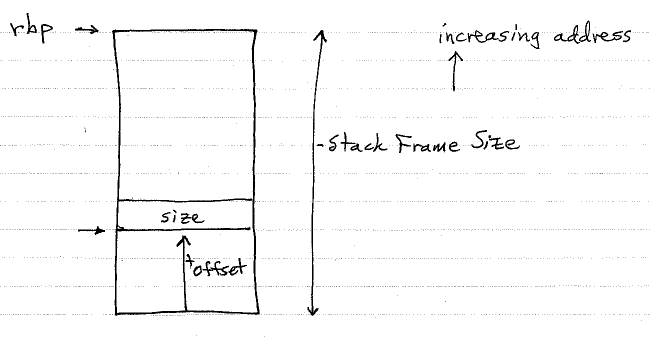 rbp →
increasing address
-Stack Frame Size
size
+offset